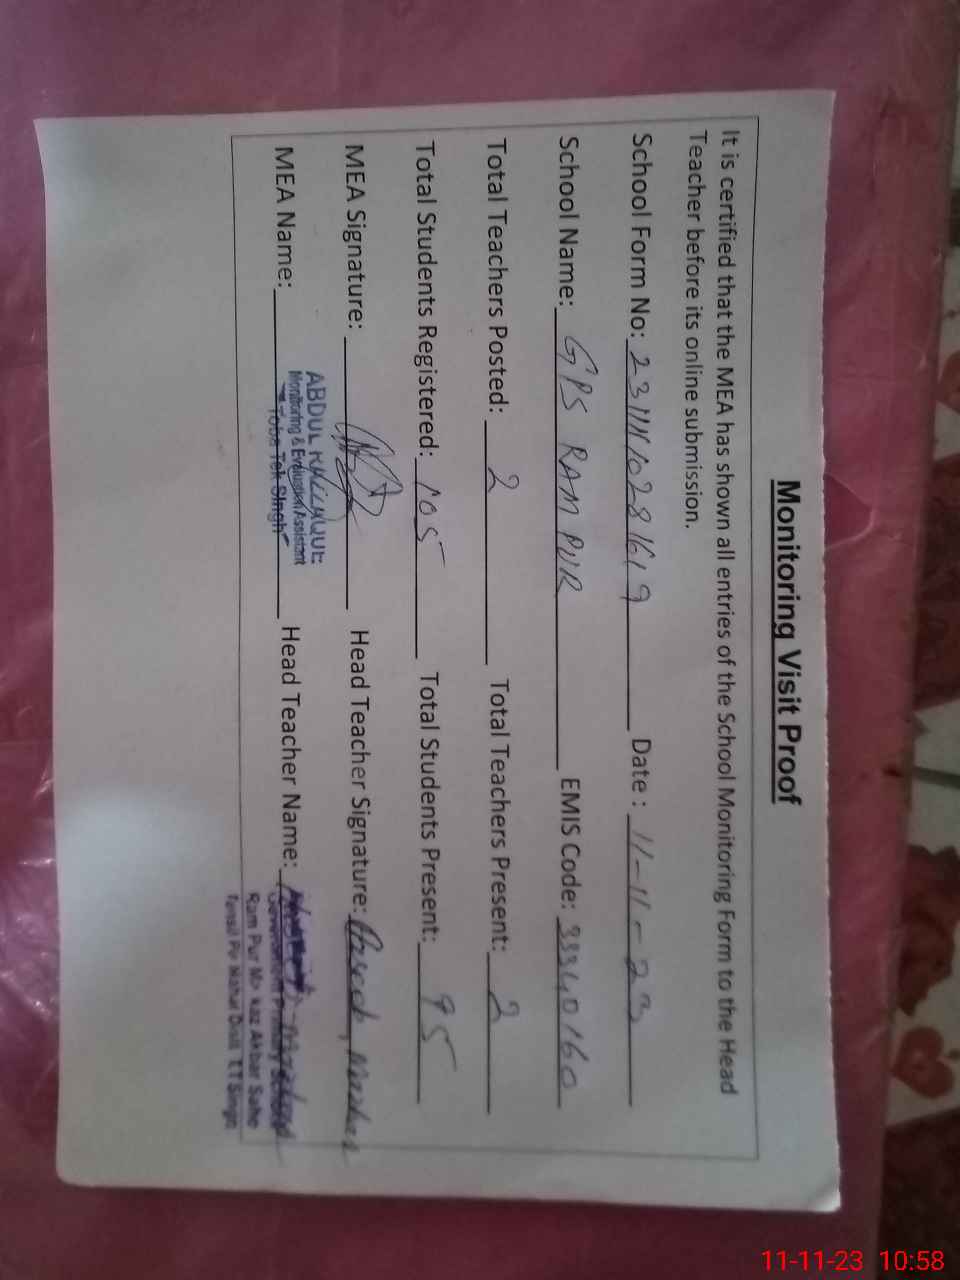 Monitoring Visit Proof
It is certified that the MEA has shown all entries of the School Monitoring Form to the Head
Teacher before its online submission.
School Form No: 231111028161 9 Date : 11-11-23
School Name: GPS RAM PUR EMIS Code: 33340160
Total Teachers Posted: 2 Total Teachers Present: 2
Total Students Registered: 105 Total Students Present: 95
MEA Signature: Head Teacher Signature:
MEA Name: Head Teacher Name:
ABDUL KHALIQUE
Monitoring & Evaluation Assistant
Toba Tek Singh
Government Primary School
Ram Pur Markaz Akbar
Tehsil Pir Mahal Distt T.T Singh
11-11-23 10:58